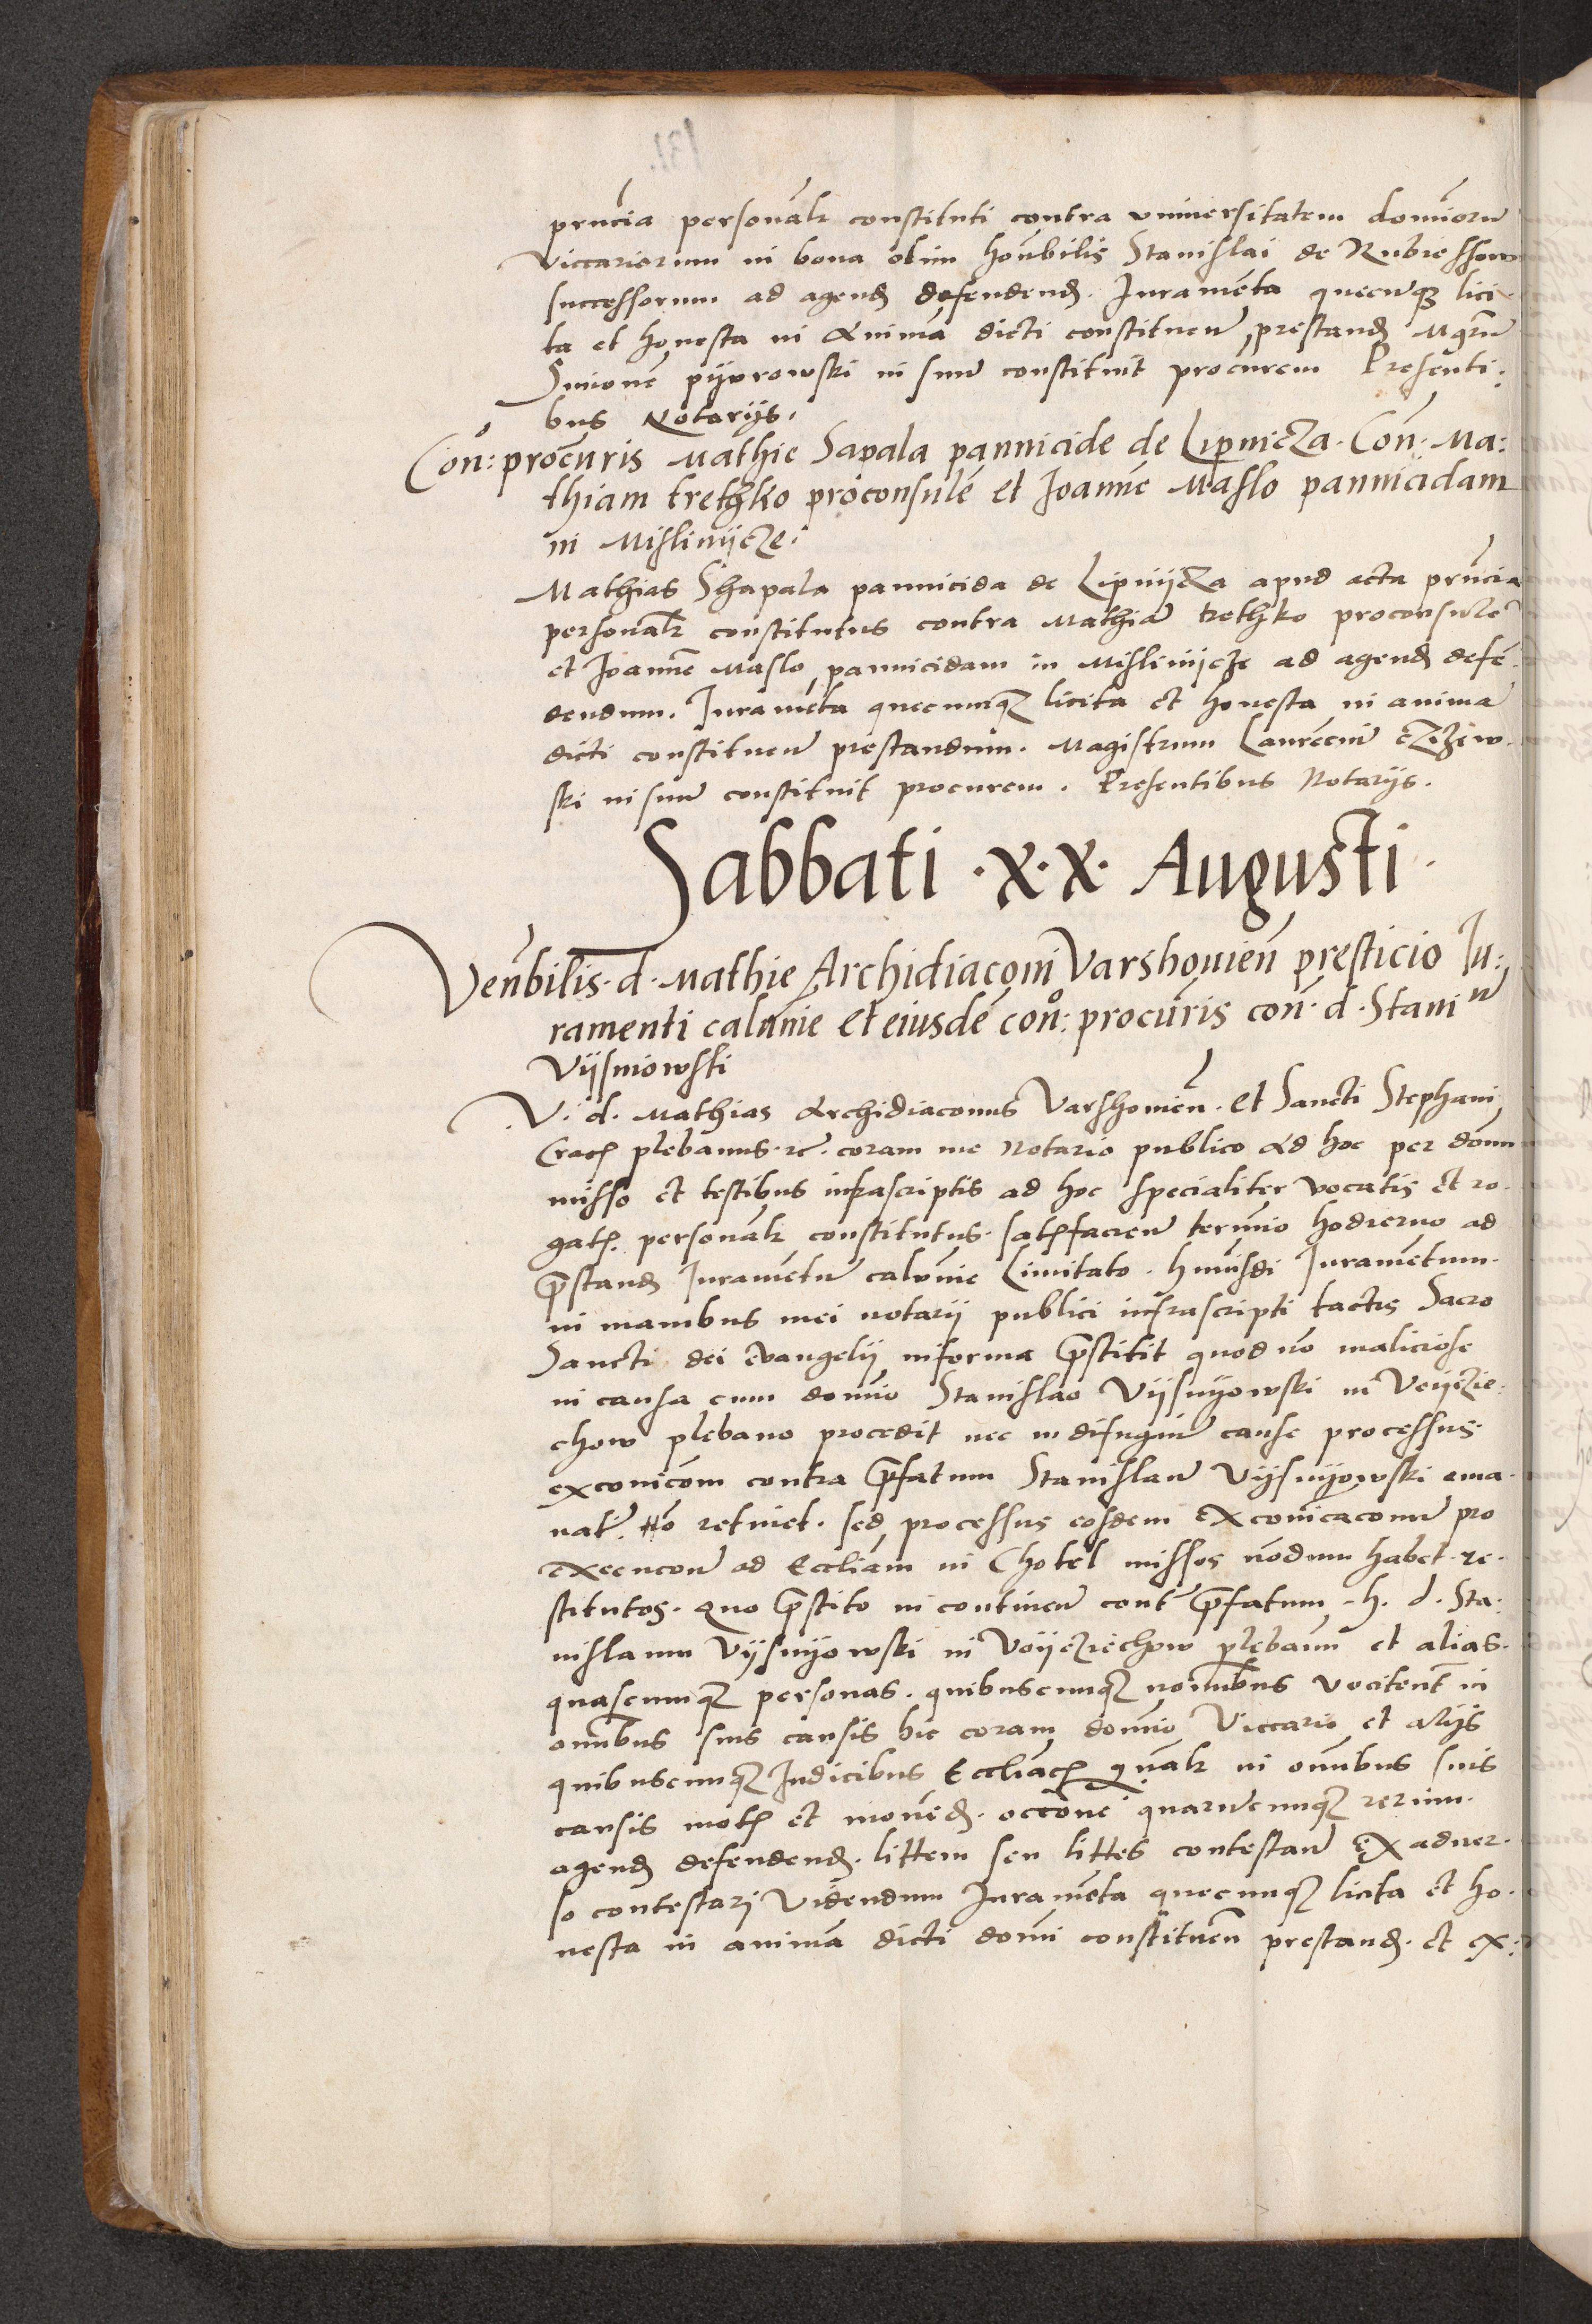 prncia personalr constituti contra universitatem dominoru
Viccariorum in bona olim honbilis Stanislai de Rubiesshow
successorum ad agend defendend. Juramenta quecunq lici-
ta et honesta in Anima dicti constituen prestand Mgrm
Simonem pijorowski in suu constituit procurem Presenti:
bus Notarijs.
Con: procuris Mathie Sapala pannicide de Lipnicza. Con. Ma:
thiam trethko proconsule et Joanne Maslo pannicidam
in Mislimijcze.
Mathias Shapala pannicida de Lipnijcza apud acta prncia
personalr constitutus contra Mathia trethko proconsule
et Joanne Maslo pannicidam in Mislimijcze ad agend defe-
dendum. Juramenta quecunq licita et honesta in anima
dicti constituen prestandum. Magistrum Laurenciu
ski in suu constituit procurem. Presentibus Notarijs.
Sabbati .x.x. Augusti.
Venbilis. d. Mathie Archidiaconi Varshouien presticio Iu:
ramenti calunie et eiusde con: procuris con. d. Stani
Vijsniowski
V. d. Mathias Archidiaconus Varshouien. et Sancti Stephani
Crac plebanus. rc. coram me Notario publico Ad hoc per domn
misso et testibus infrascriptis ad hoc specialiter vocatis et ro-
gatis personalr constitutus. satisfacien termino hodierno ad
prestand Juramentu calumnie Limitato. Huiusdi Juramentum.
in manibus mei notarii publici infrascripti tactis Sacro
Sanctis dei Evangelij in forma prestitit quod no maliciose
in causa cum domino Stanislao Vijsnijowski in Voijczie:
chow plebano procedit nec in difugiu cause processus
exconicom contra prefatum Stanislau Vijsnijowski ema-
nat. No retinet. sed processus eosdem Exconicaconu pro
execucon ad Eccliam in Chotel missos nondum habet. re-
stitutos. Quo prestito in continen cont prefatum. h. d. Sta:
nislaum Vijsnijowski in Voijcziechow plebanu et alias.
quascunq personas. quibuscunq nominibus vocitent in
omnibus suis causis hic coram domino Viccario et alijs
quibuscunq Judicibus Eccliac gnalr in omnibus suis
causis motis et movend. occone quarucunq rerum.
agend defendend. littem seu littes contestan Ex adver-
so contestari Videndum Juramenta quecunq licita et ho-
nesta in anima dicti domi constituen prestand. et ex: